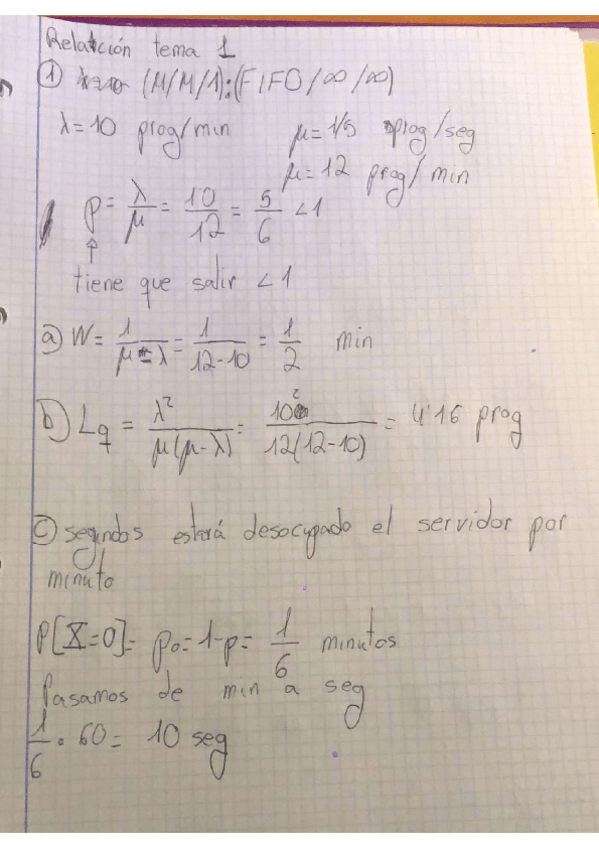 Relación tema 1
① (M/M/1):(FIFO/∞/∞)
λ=10 prog/min μ=1/5 prog/seg
μ=12 prog/min
ρ = λ/μ = 10/12 = 5/6 <1
↑
tiene que salir <1
a) W = 1/(μ-λ) = 1/(12-10) = 1/2 min
b) Lq = λ²/(μ(μ-λ)) = 10²/(12(12-10)) = 4'16 prog
c) segundos estará desocupado el servidor por
minuto
P[X=0]= p₀=1-ρ= 1/6 minutos
Pasamos de min a seg
1/6 · 60= 10 seg